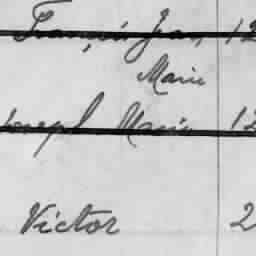 François Jean, 12
Marie
Joseph Marie 12
Victor 2